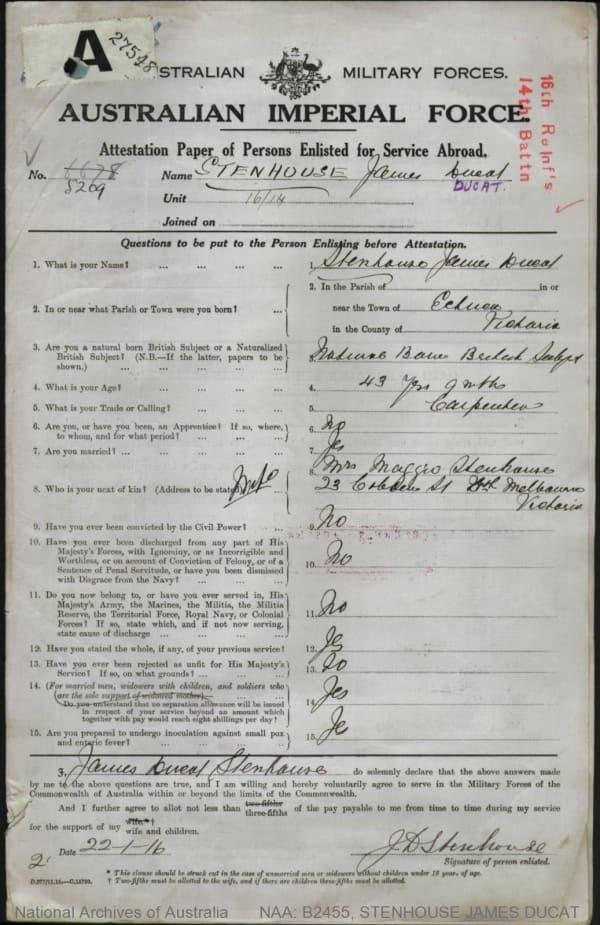 A 27548
AUSTRALIAN MILITARY FORCES.
AUSTRALIAN IMPERIAL FORCE.
16th Reinf's
14th Battn
Attestation Paper of Persons Enlisted for Service Abroad.
No. 5209 Name STENHOUSE James Ducat
DUCAT.
Unit 16/14
Joined on
Questions to be put to the Person Enlisting before Attestation.
1. What is your Name? ... ... ... ... 1. Stenhouse James Ducat
2. In or near what Parish or Town were you born? ... 2. In the Parish of in or
near the Town of Echuca
in the County of Victoria
3. Are you a natural born British Subject or a Naturalized
British Subject? (N.B.—If the latter, papers to be
shown.) ... ... ... ... 3. Natural Born British Subject
4. What is your Age? ... ... ... ... 4. 43 yrs 9 mths
5. What is your Trade or Calling? ... ... ... 5. Carpenter
6. Are you, or have you been, an Apprentice? If so, where,
to whom, and for what period? ... ... ... 6. No
7. Are you married? ... ... ... ... ... 7. Yes
8. Who is your next of kin? (Address to be stated) Wife ... 8. Mrs Maggie Stenhouse
23 Cobden St Sth Melbourne
Victoria
9. Have you ever been convicted by the Civil Power? ... 9. No
10. Have you ever been discharged from any part of His
Majesty's Forces, with Ignominy, or as Incorrigible and
Worthless, or on account of Conviction of Felony, or of a
Sentence of Penal Servitude, or have you been dismissed
with Disgrace from the Navy? ... ... ... 10. No
11. Do you now belong to, or have you ever served in, His
Majesty's Army, the Marines, the Militia, the Militia
Reserve, the Territorial Force, Royal Navy, or Colonial
Forces? If so, state which, and if not now serving,
state cause of discharge ... ... ... ... 11. No
12. Have you stated the whole, if any, of your previous service? 12. Yes
13. Have you ever been rejected as unfit for His Majesty's
Service? If so, on what grounds? ... ... ... 13. No
14. (For married men, widowers with children, and soldiers who
are the sole support of widowed mother)—
Do you understand that no separation allowance will be issued
in respect of your service beyond an amount which
together with pay would reach eight shillings per day? 14. Yes
15. Are you prepared to undergo inoculation against small pox
and enteric fever? ... ... ... ... 15. Yes
I, James Ducat Stenhouse do solemnly declare that the above answers made
by me to the above questions are true, and I am willing and hereby voluntarily agree to serve in the Military Forces of the
Commonwealth of Australia within or beyond the limits of the Commonwealth.
And I further agree to allot not less than two-fifths three-fifths of the pay payable to me from time to time during my service
for the support of my wife* † wife and children.
Date 22-1-16 J D Stenhouse
Signature of person enlisted.
* This clause should be struck out in the case of unmarried men or widowers without children under 18 years of age.
† Two-fifths must be allotted to the wife, and if there are children three-fifths must be allotted.
National Archives of Australia NAA: B2455, STENHOUSE JAMES DUCAT